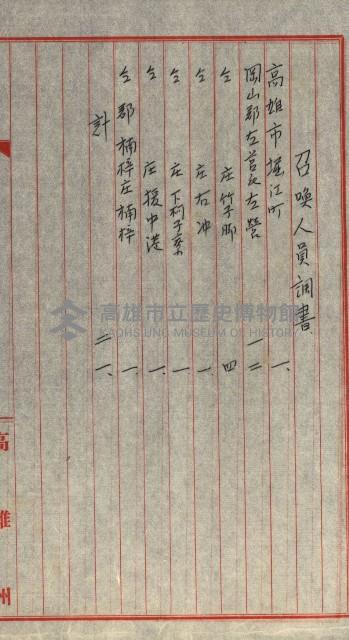 召喚人員調書
高雄市堀江町 一、
岡山郡左營庄左營 一二
仝 庄竹子脚 四
仝 庄右冲 一、
仝 庄下 一
仝 庄援中港 一、
仝郡楠梓庄楠梓 一、
計 二一、
高雄州
高雄市立歷史博物館
KAOHSIUNG MUSEUM OF HISTORY